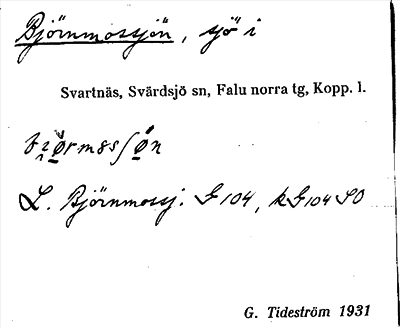 Björnmossjön, sjö i
Svartnäs, Svärdsjö sn, Falu norra tg, Kopp. l.
L. Björnmossj. G 104, kG104 SO
G. Tideström 1931